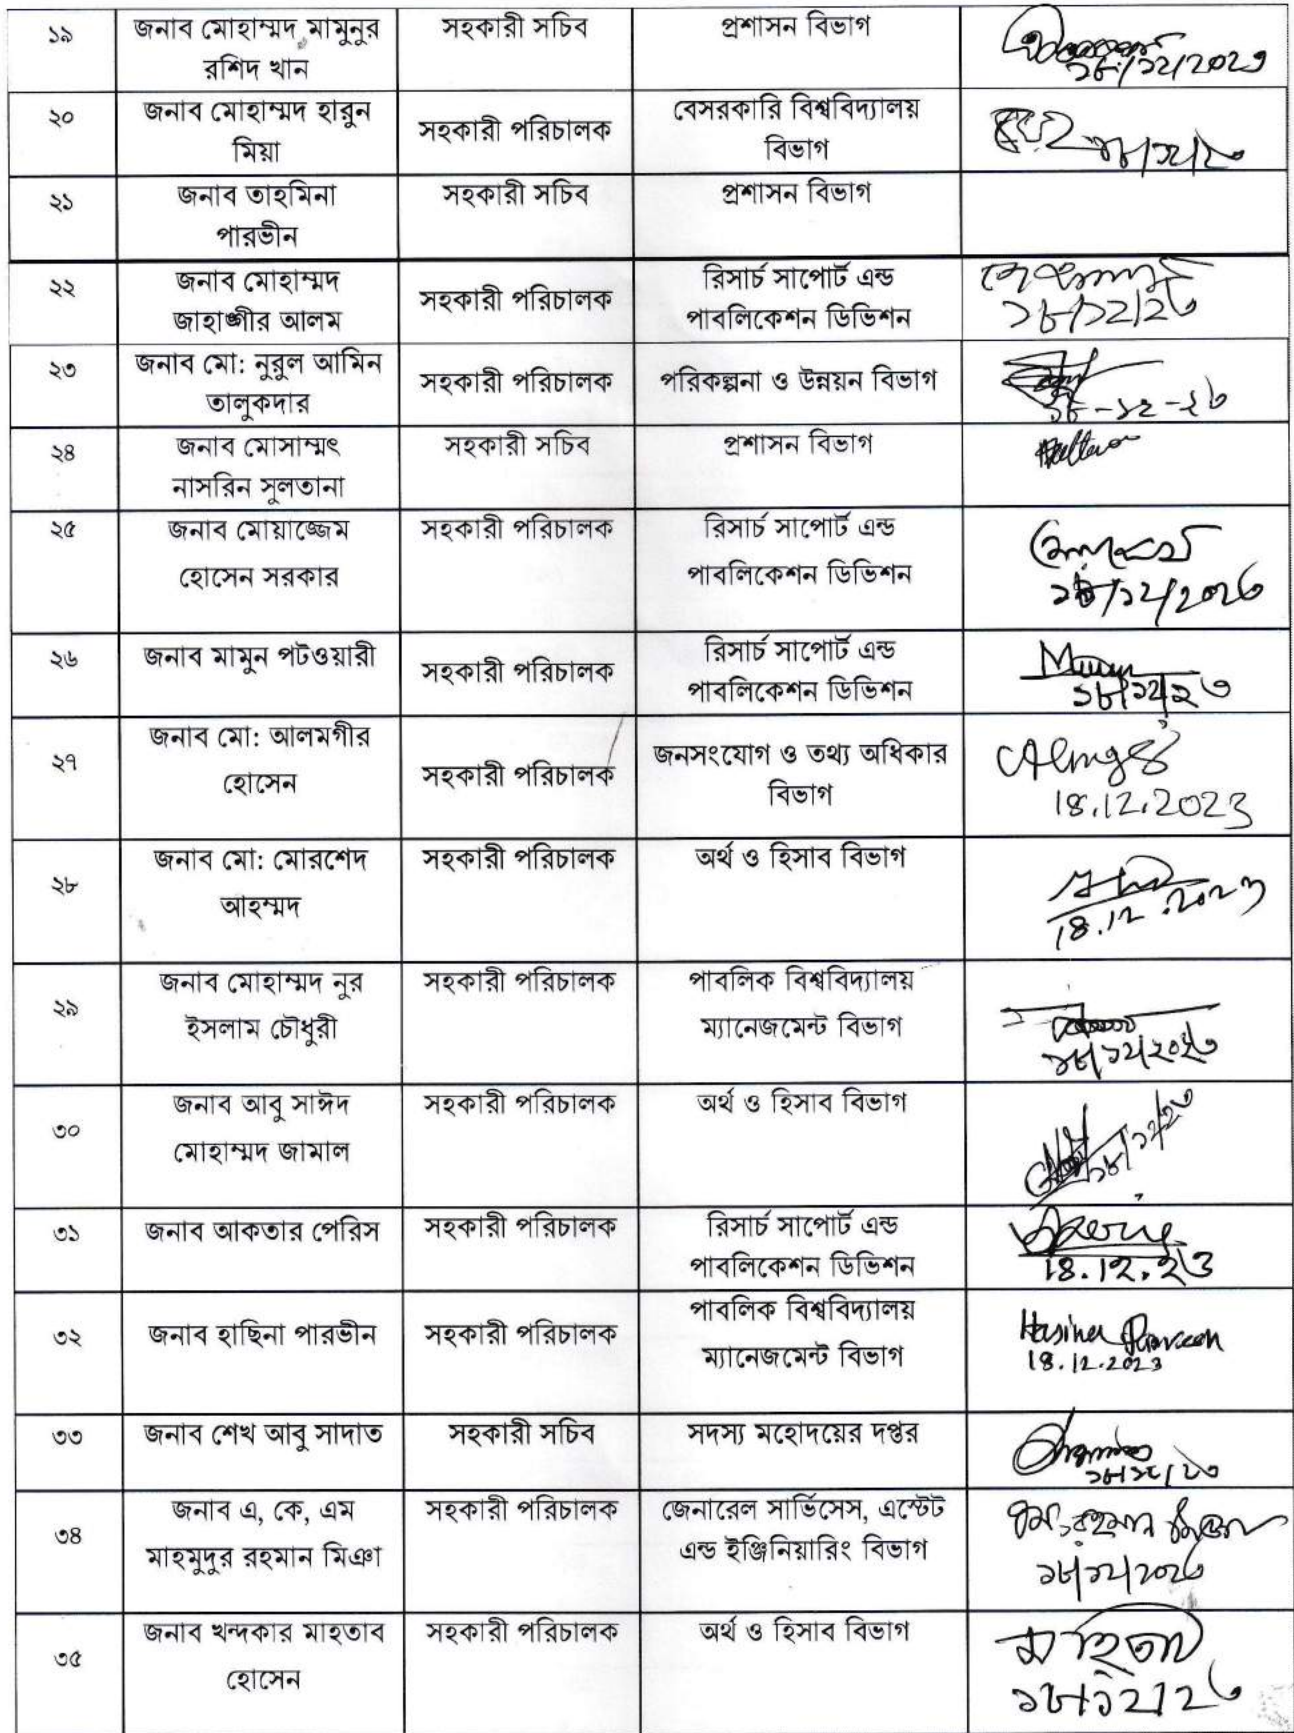 ১৯
জনাব মোহাম্মদ মামুনুর
রশিদ খান
সহকারী সচিব
প্রশাসন বিভাগ
১৮/১২/২০২৩
২০
জনাব মোহাম্মদ হারুন
মিয়া
সহকারী পরিচালক
বেসরকারি বিশ্ববিদ্যালয়
বিভাগ
২১
জনাব তাহমিনা
পারভীন
সহকারী সচিব
প্রশাসন বিভাগ
২২
জনাব মোহাম্মদ
জাহাঙ্গীর আলম
সহকারী পরিচালক
রিসার্চ সাপোর্ট এন্ড
পাবলিকেশন ডিভিশন
১৮/১২/২৩
২৩
জনাব মো: নুরুল আমিন
তালুকদার
সহকারী পরিচালক
পরিকল্পনা ও উন্নয়ন বিভাগ
১৮-১২-২৩
২৪
জনাব মোসাম্মৎ
নাসরিন সুলতানা
সহকারী সচিব
প্রশাসন বিভাগ
২৫
জনাব মোয়াজ্জেম
হোসেন সরকার
সহকারী পরিচালক
রিসার্চ সাপোর্ট এন্ড
পাবলিকেশন ডিভিশন
১৮/১২/২০২৩
২৬
জনাব মামুন পটওয়ারী
সহকারী পরিচালক
রিসার্চ সাপোর্ট এন্ড
পাবলিকেশন ডিভিশন
১৮/১২/২৩
২৭
জনাব মো: আলমগীর
হোসেন
সহকারী পরিচালক
জনসংযোগ ও তথ্য অধিকার
বিভাগ
18.12.2023
২৮
জনাব মো: মোরশেদ
আহম্মদ
সহকারী পরিচালক
অর্থ ও হিসাব বিভাগ
18.12.2023
২৯
জনাব মোহাম্মদ নুর
ইসলাম চৌধুরী
সহকারী পরিচালক
পাবলিক বিশ্ববিদ্যালয়
ম্যানেজমেন্ট বিভাগ
১৮/১২/২০২৩
৩০
জনাব আবু সাঈদ
মোহাম্মদ জামাল
সহকারী পরিচালক
অর্থ ও হিসাব বিভাগ
১৮/১২/২৩
৩১
জনাব আকতার পেরিস
সহকারী পরিচালক
রিসার্চ সাপোর্ট এন্ড
পাবলিকেশন ডিভিশন
18.12.২৩
৩২
জনাব হাছিনা পারভীন
সহকারী পরিচালক
পাবলিক বিশ্ববিদ্যালয়
ম্যানেজমেন্ট বিভাগ
Hasina Parveen
18.12.2023
৩৩
জনাব শেখ আবু সাদাত
সহকারী সচিব
সদস্য মহোদয়ের দপ্তর
১৮/১২/২৩
৩৪
জনাব এ, কে, এম
মাহমুদুর রহমান মিঞা
সহকারী পরিচালক
জেনারেল সার্ভিসেস, এস্টেট
এন্ড ইঞ্জিনিয়ারিং বিভাগ
১৮/১২/২০২৩
৩৫
জনাব খন্দকার মাহতাব
হোসেন
সহকারী পরিচালক
অর্থ ও হিসাব বিভাগ
১৮/১২/২৩